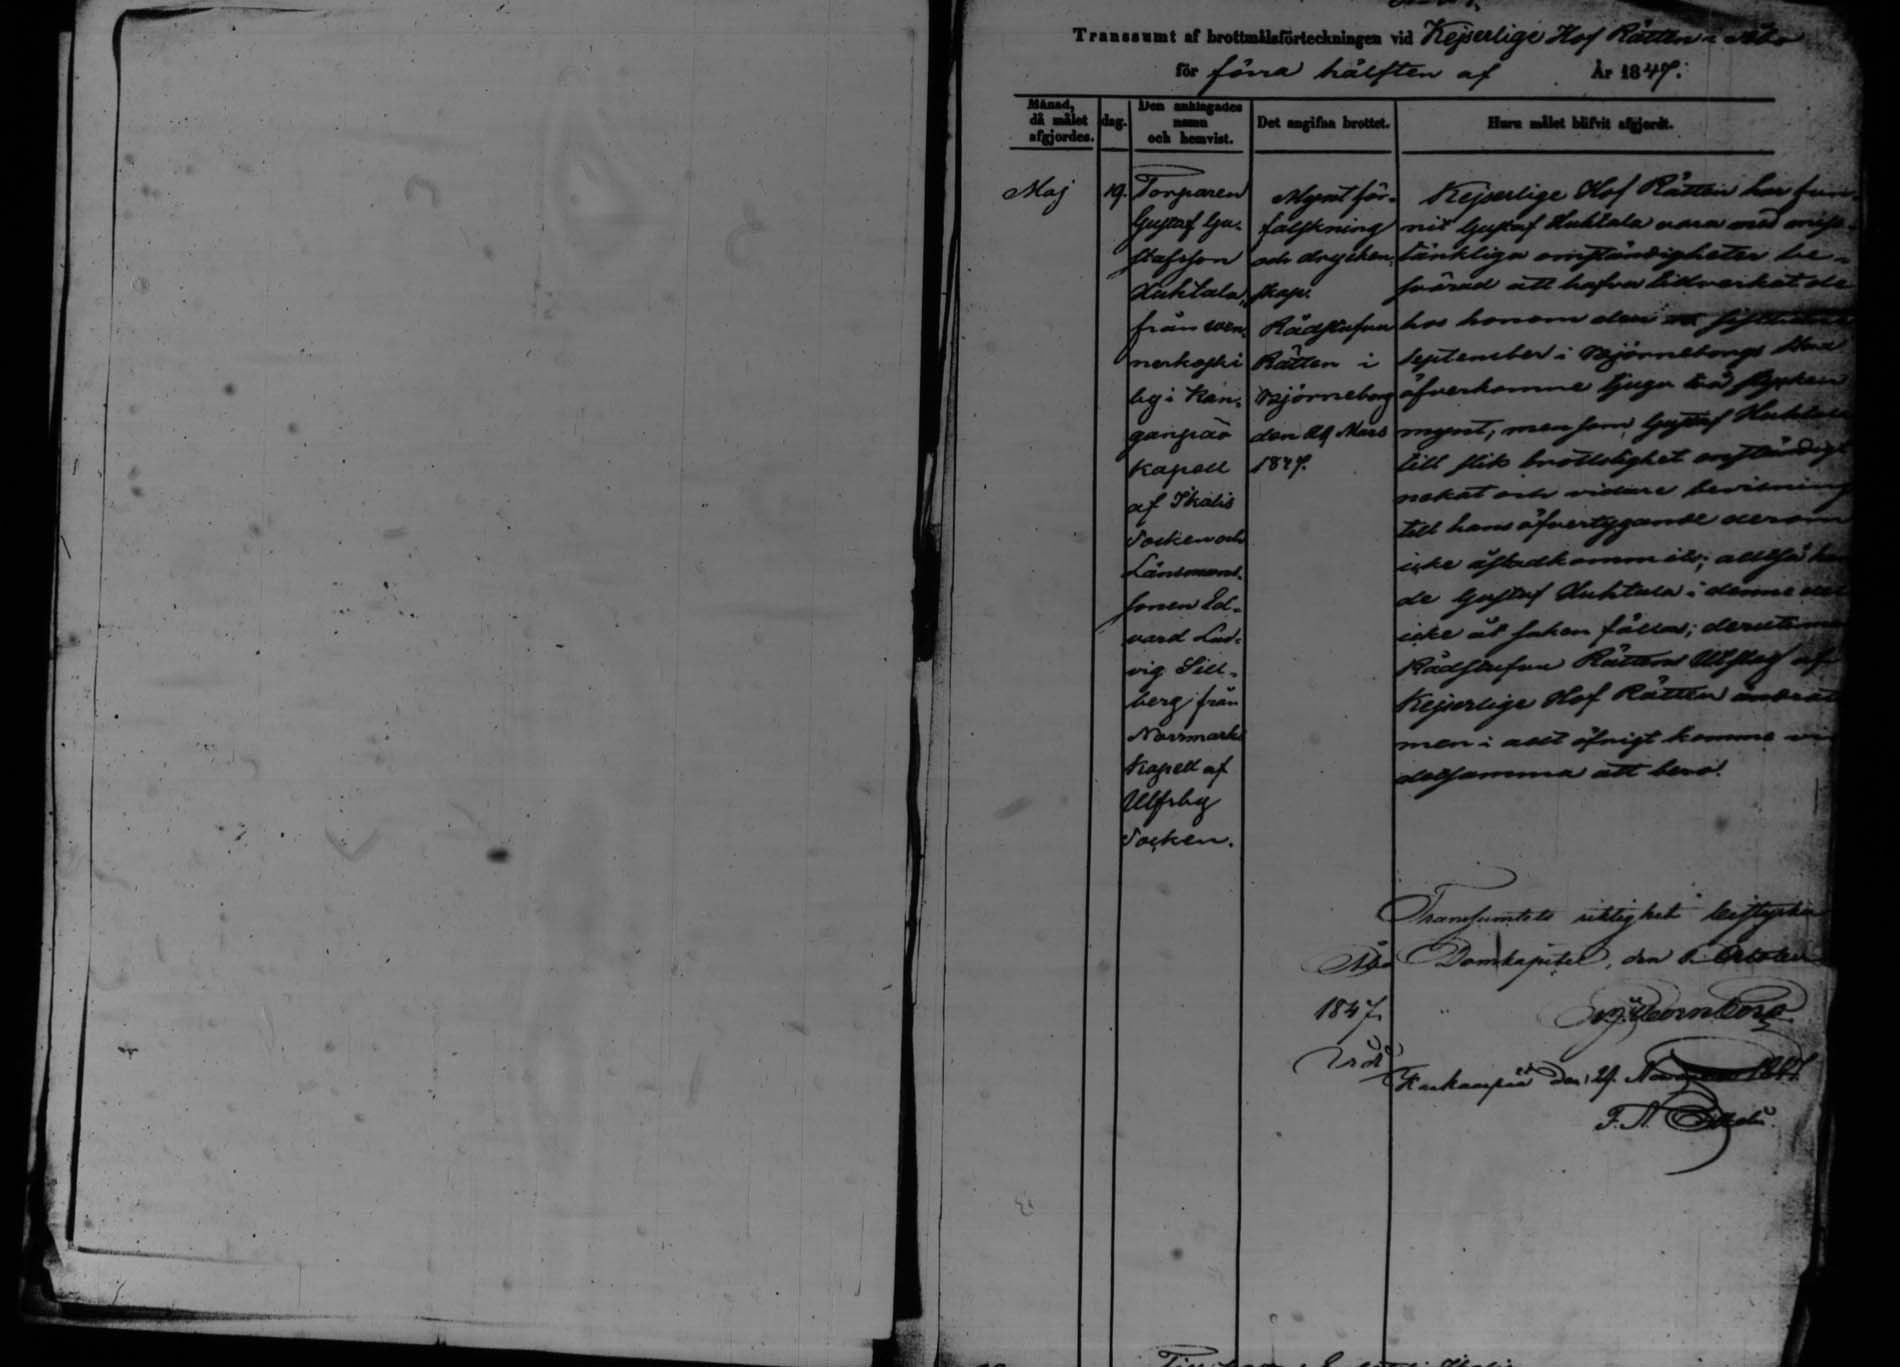 Transsumt af brottmålsförteckningen vid Kejserlige Hof Rätten i Åbo
för förra hälften af År 1847.
Månad, då målet afgjordes.
dag.
Den anklagades namn och hemvist.
Det angifna brottet.
Huru målet blifvit afgjordt.
Maj
19.
Torparen
Gustaf Gu-
stafsson
Huhtala,
från
nerkoski
by i Kan-
ganpää
Kapell
af Ikalis
Socken och
Länsmans-
sonen Ed-
vard Lud-
vig Sill-
berg från
Norrmarks
Kapell af
Ulfsby
Socken.
Mynt för-
falskning
och drycken-
skap.
Rådstufvu
Rätten i
Björneborg
den Mars
1847.
Kejserlige Hof Rätten har fun-
nit Gustaf Huhtala vara med miss-
tänkliga omständigheter be-
svärad att hafva tillverkat de
hos honom den
September i Björneborgs Stad
öfverkomne tjugu två stycken
mynt, men som Gustaf Huhtala
till slik brottslighet enständigt
nekat och vidare bevisning
till hans öfvertygande derom
icke åstadkommits; alltså
de Gustaf Huhtala i denne del
icke åt saken fällas;
Rådstufvu Rättens Utslag af
Kejserlige Hof Rätten ändrat
men i allt öfrigt komme vid
detsamma att bero.
Transsumtets riktighet bestyrker
Åbo Domkapitel, den Oktober
1847.
Kankaanpää den 21. 1847.
F. A.